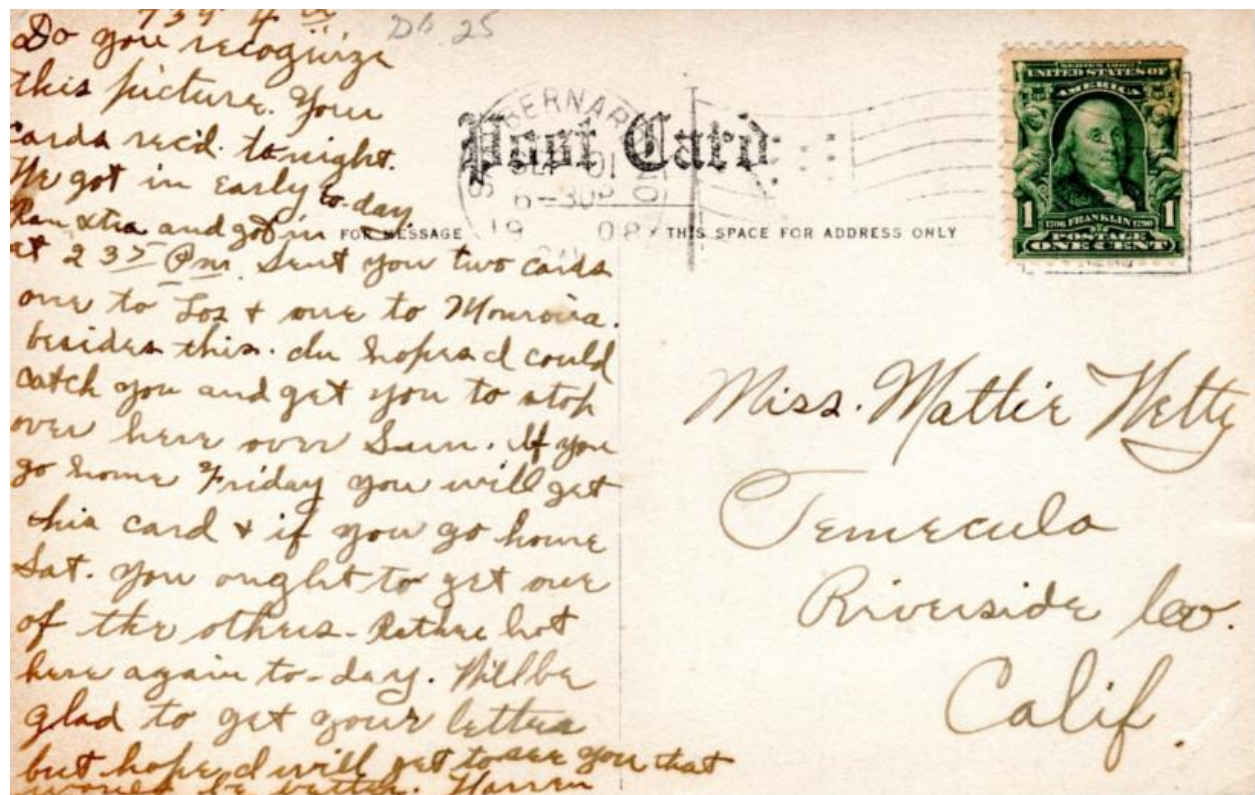 739 4th
DB 25
Do you recognize
this picture. Your
cards rec'd. tonight.
We got in early to-day.
Ran xtra and got in
at 2 35 Pm. Sent you two cards
one to Los + one to Monrovia.
besides this. In hopes I could
catch you and get you to stop
over here over Sun. If you
go home Friday you will get
this card + if you go home
Sat. you ought to get one
of the others - Rather hot
here again to-day. Will be
glad to get your letter
but hope I will get to see you that
would be better. Warren
Post Card
FOR MESSAGE
THIS SPACE FOR ADDRESS ONLY
BERNAR
6-30P
1908
CAL
SERIES 1902
UNITED STATES OF
AMERICA
1 1706 FRANKLIN 1790 1
POSTAGE
ONE CENT
Miss. Mattie Welty
Temecula
Riverside Co.
Calif.